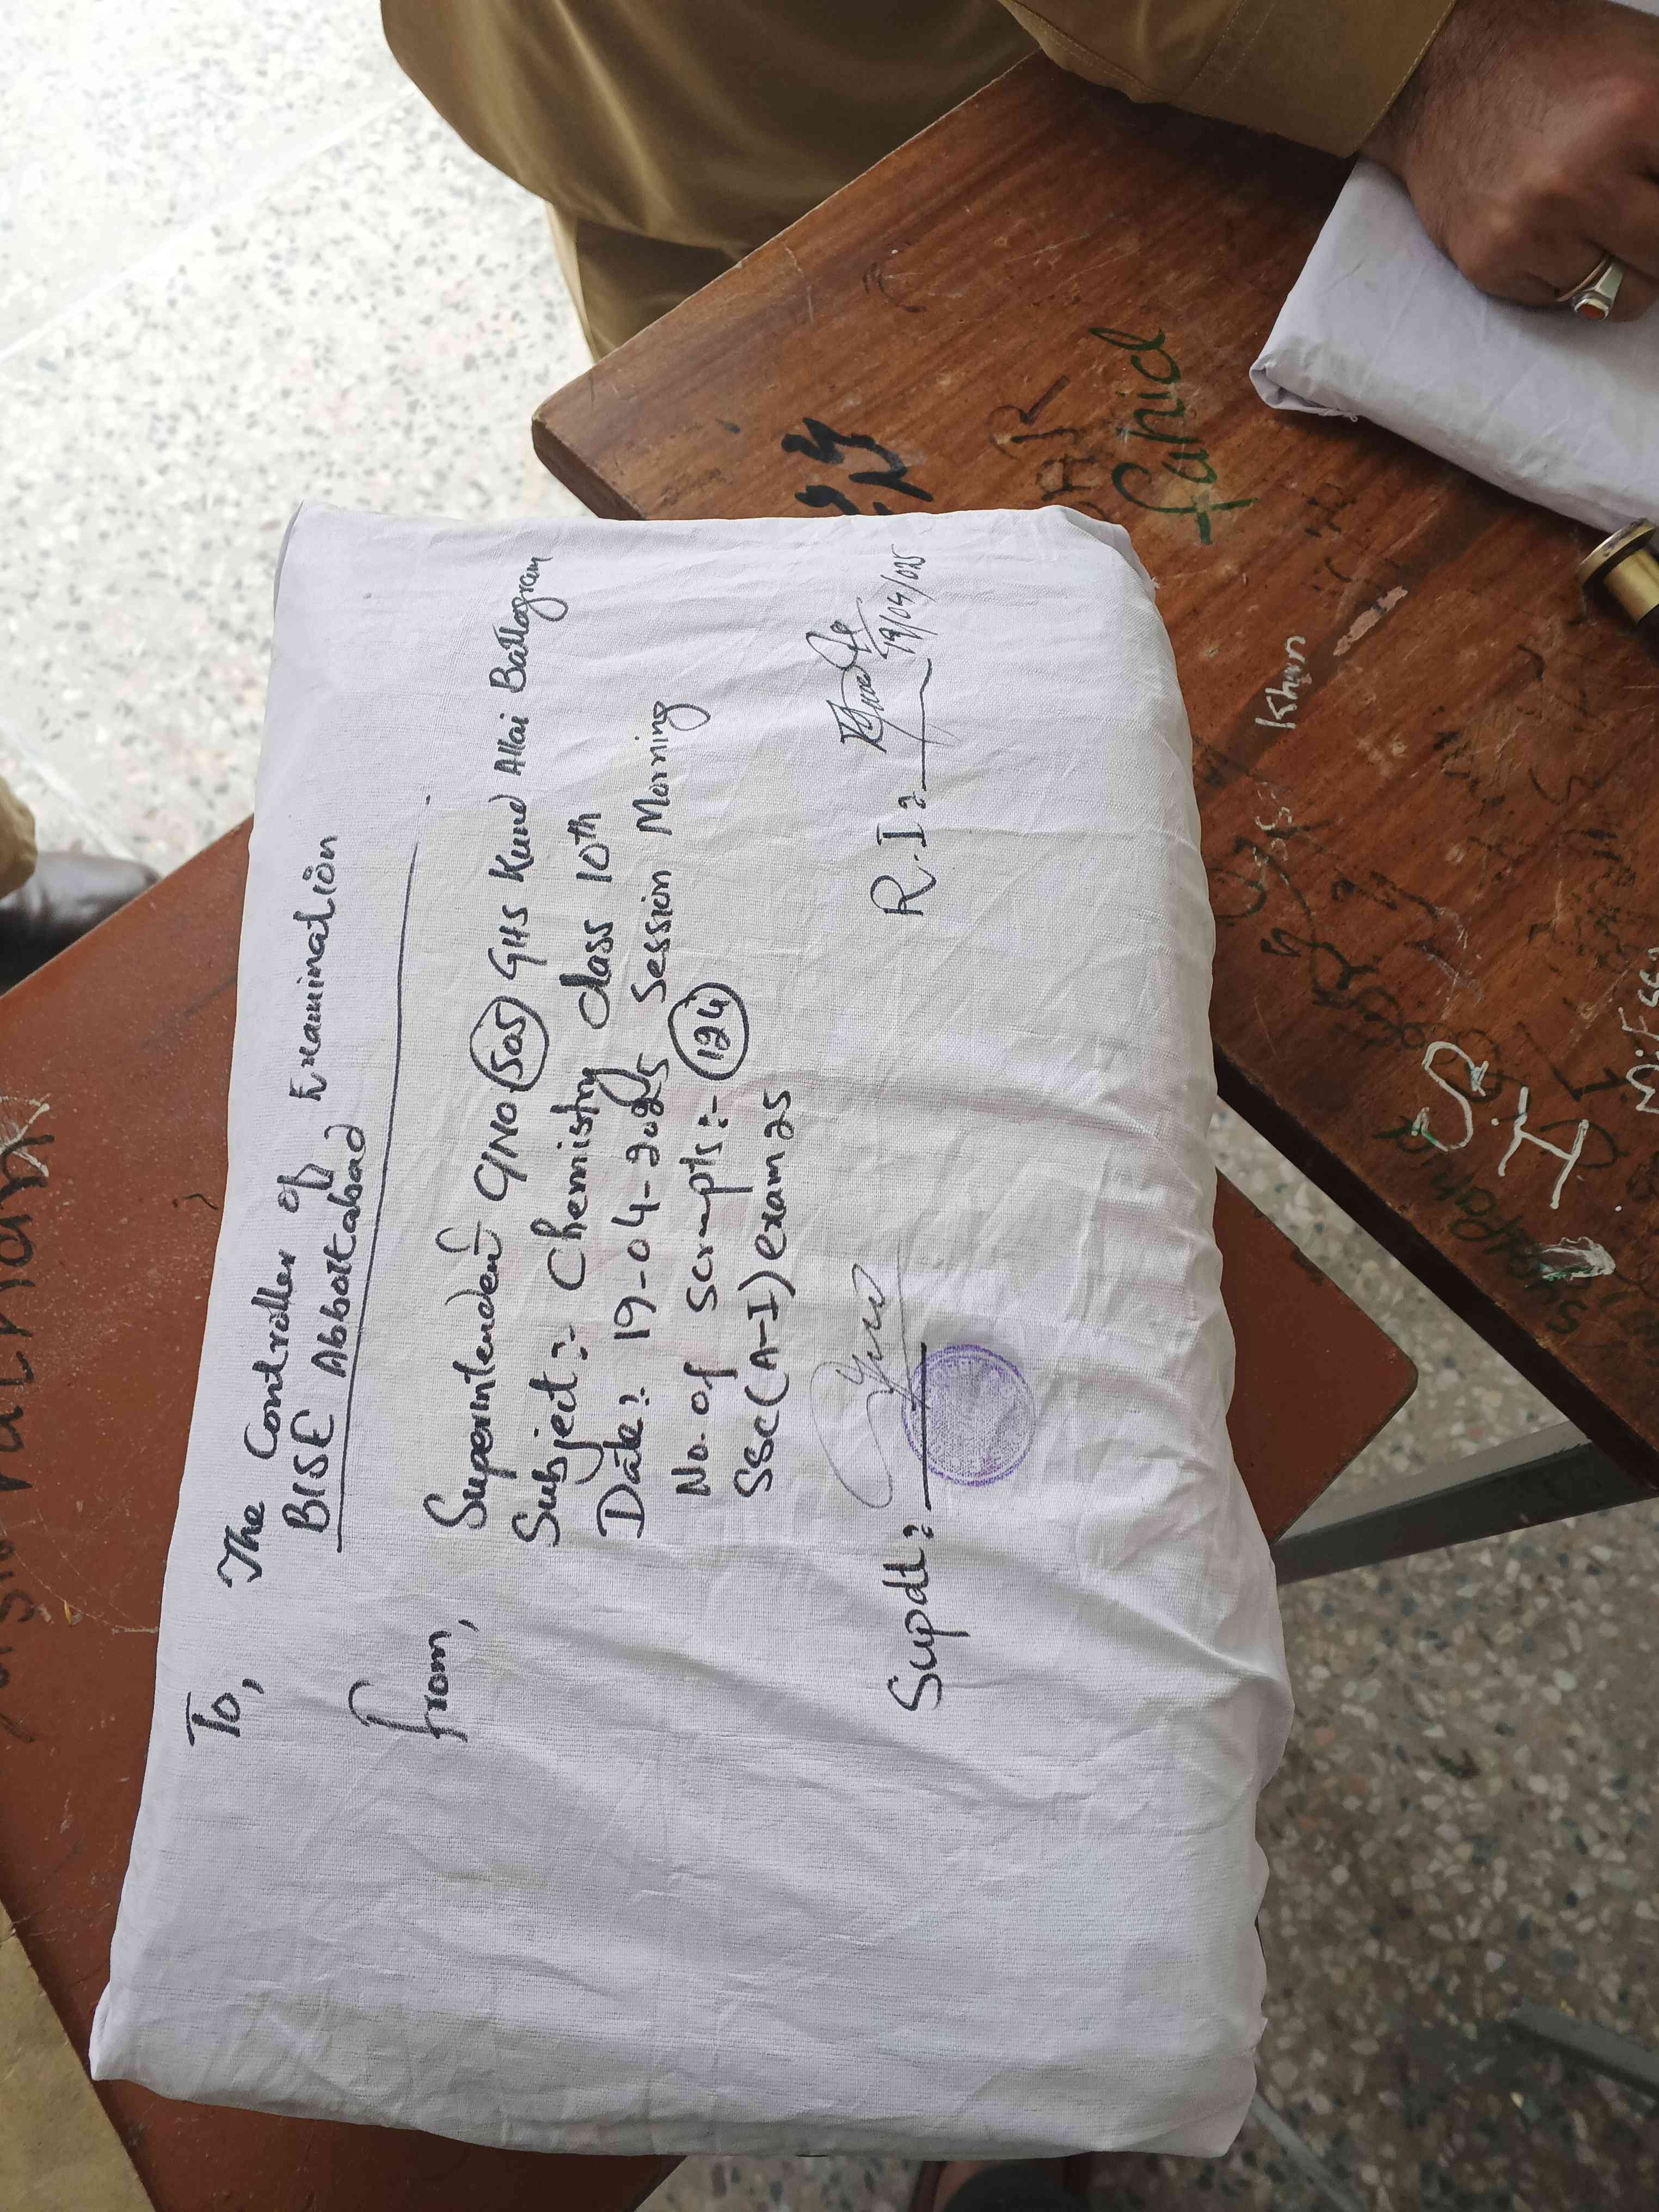 To,
The Controller of Examination
BISE Abbottabad
From,
Superintendent C/NO 505 GHS Kund Allai Battagram
Subject:- Chemistry Class 10th
Date: 19-04-2025 Session Morning
No. of Scrempts:- 124
SSC(A-I) exam 25
Supdt:
R.I:
19/04/025
fahid
Khan